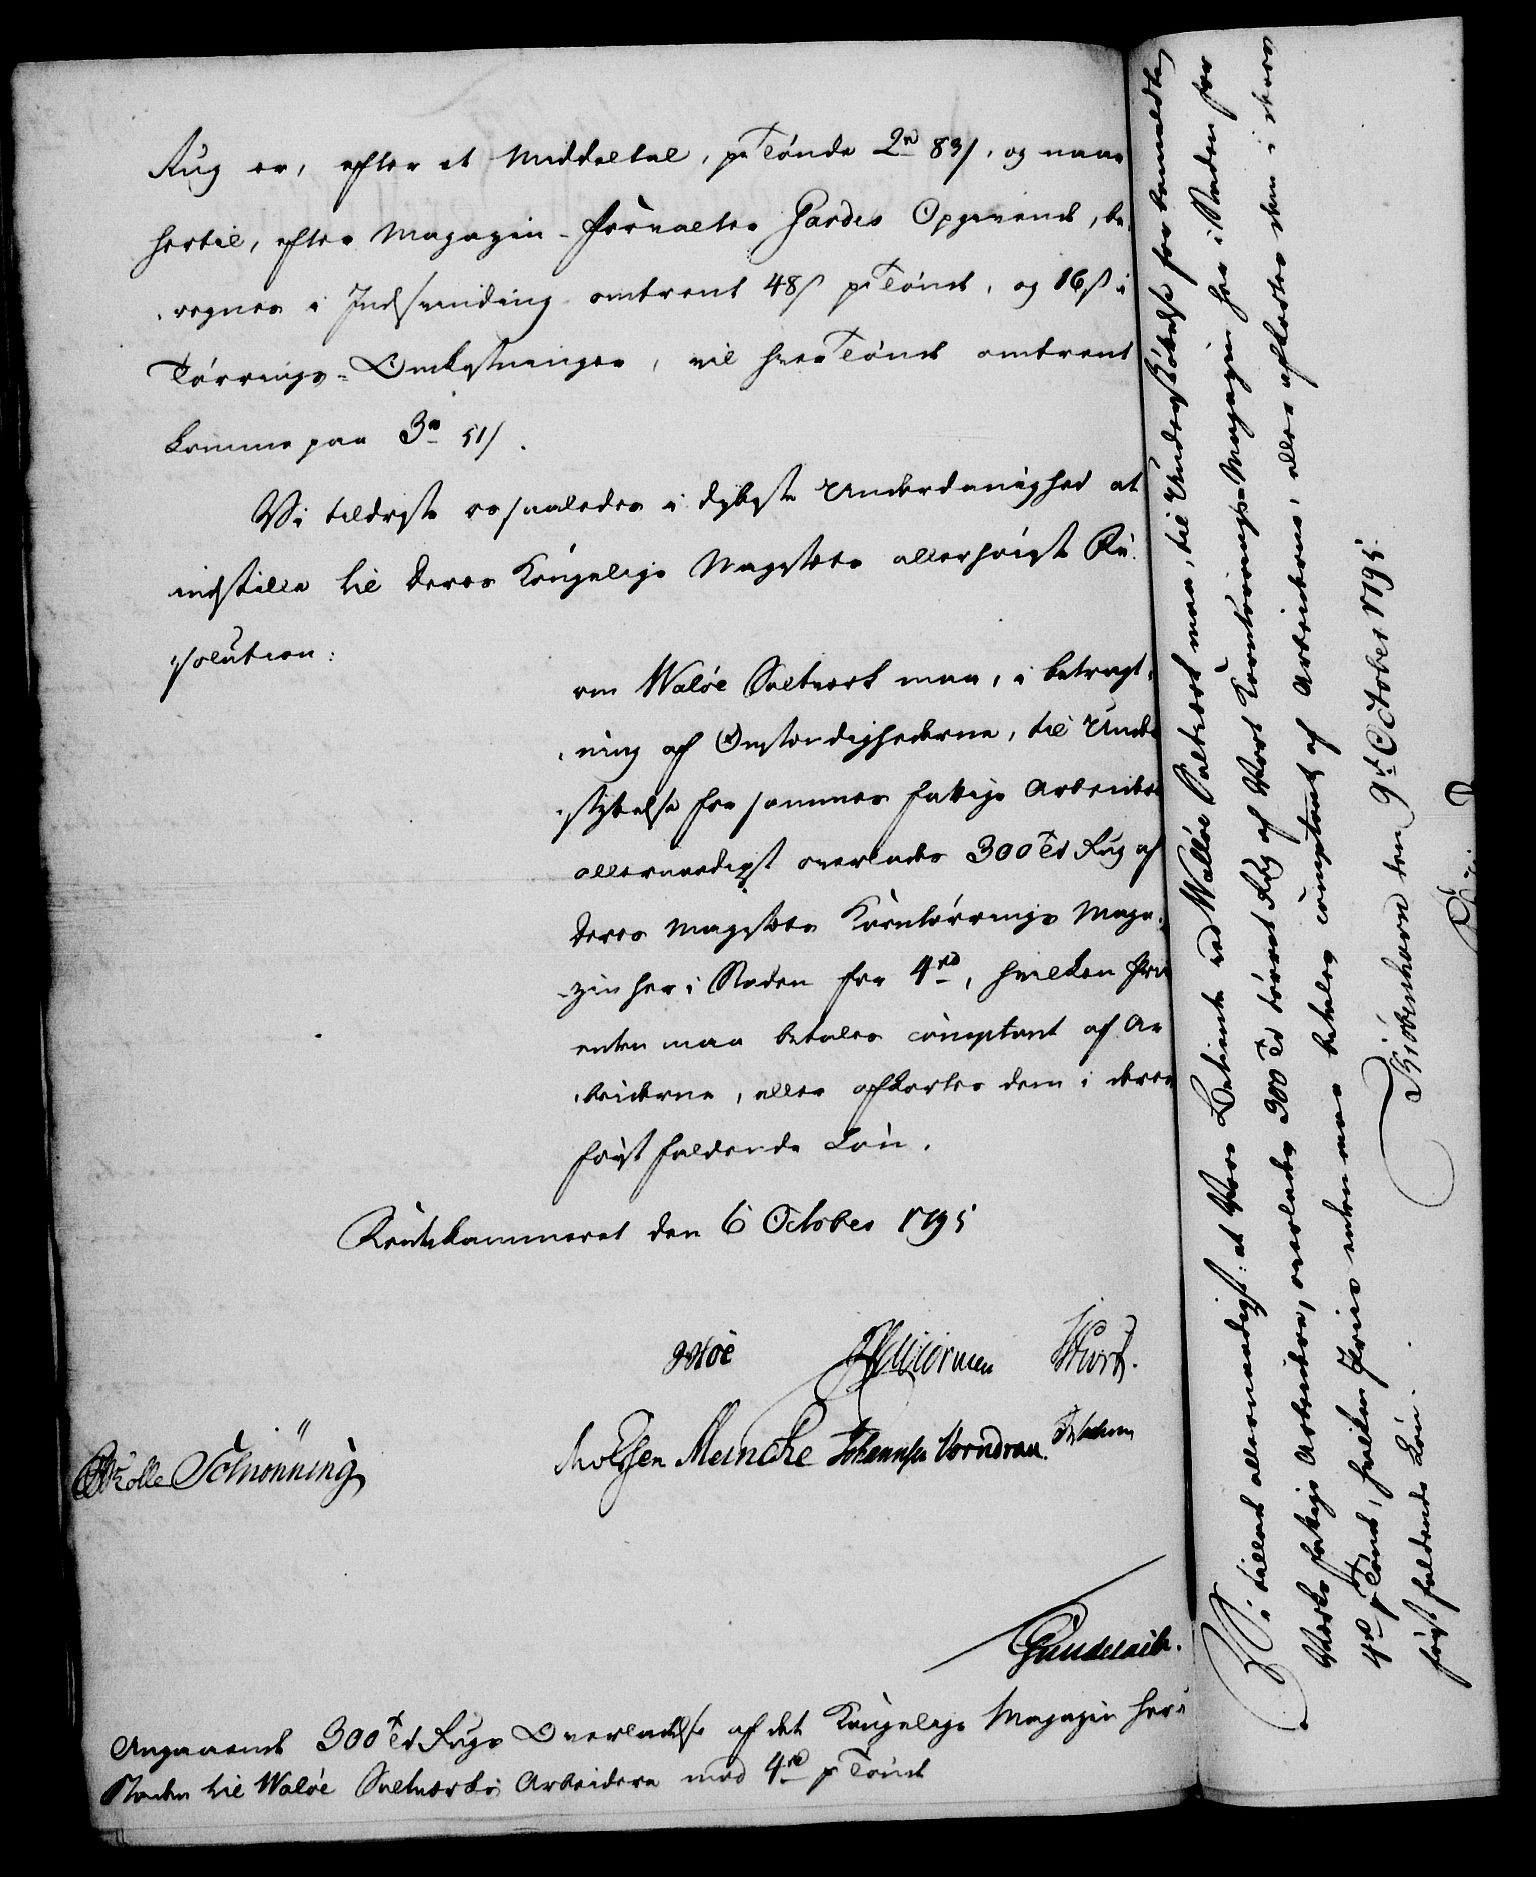 Rug er, efter et Middeltal, pr Tønde 2 rd 83 s, og naar
hertil, efter Magazin-Forvalter Gardes Opgivende, be-
regnes i Indsvinding omtrent 48 s pr Tønde, og 16 s i
Tørrings-Omkostninger, vil hver Tønde omtrent
komme paa 3 rd 51 s.
Vi tildriste os saaledes i dybeste Underdanighed at
indstille til Deres Kongelige Majestæts allerhøieste Re-
solution:
om Waløe Saltværk maa, i betragt-
ning af Omstændighederne, til Under-
støttelse for sammes fattige Arbeidere
allernaadigst overlades 300 Td Rug af
Deres Majestæts Korntørrings Maga-
zin her i Staden for 4 rd, hvilken Priis
enten maa betales comptant af Ar-
beiderne, eller afkortes dem i deres
først faldende Løn.
Rentekammeret den 6 October 1795
Wormskiold
Meincke Johannsen Worndran
Schiønning
Gundelach.
Angaaende 300 Td Rugs Overladelse af det Kongelige Magazin her i
Staden til Waløe Saltværks Arbeidere mod 4 rd pr Tønde
Vi tillade allernaadigst: at Vore Betiente ved Walløe Saltværk maa, til Understøttelse for bemeldte
Værks fattige Arbeidere, overlades 300 Td tørret Rug af Vort Korntørrings-Magazin her i Staden for
4 rd pr Tønde, hvilken Priis enten maa betales comptant af Arbeiderne, eller afkortes dem i deres
først faldende Løn.
Kiøbenhavn den 9de October 1795.